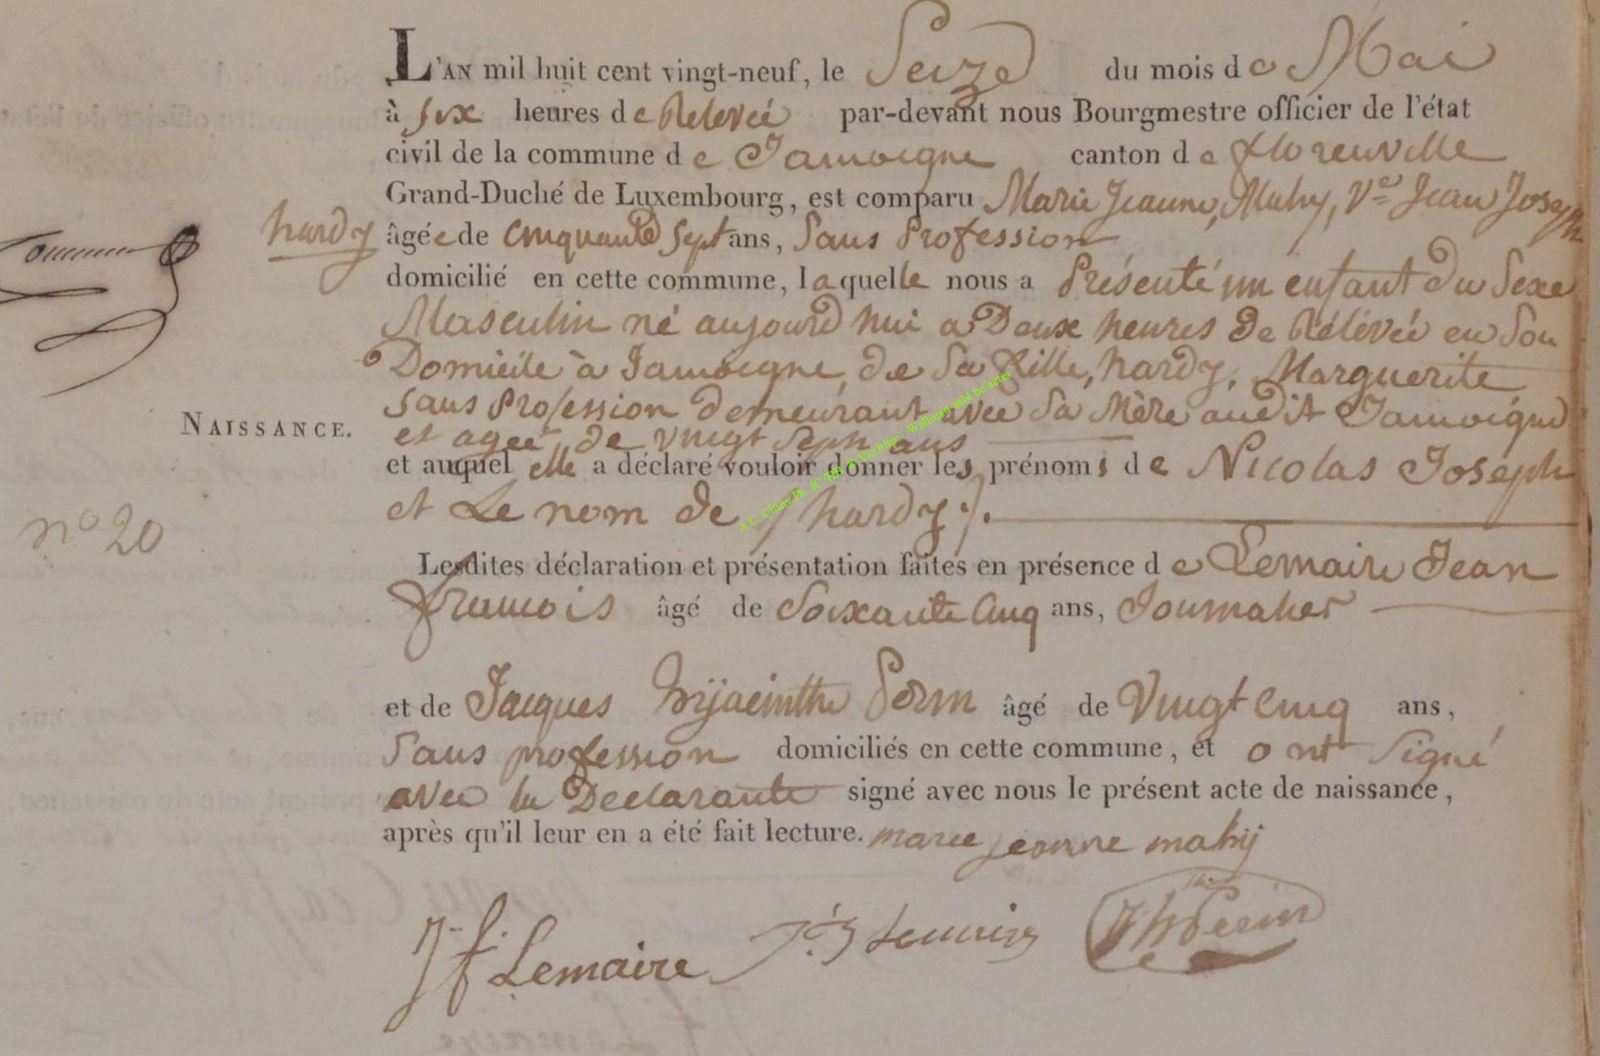 L'AN mil huit cent vingt-neuf, le Seize du mois de Mai
à six heures de Relevée par-devant nous Bourgmestre officier de l'état
civil de la commune de Jamoigne canton de florenville
Grand-Duché de Luxembourg, est comparu Marie Jeanne, Mahy, Ve Jean Joseph
hardy âgée de Cinquante Sept ans, Sans Profession
domicilié en cette commune, laquelle nous a Présenté un enfant du Sexe
Masculin né aujourd hui a Deux heures de Rélévée en Son
Domicile à Jamoigne, de Sa fille, hardy, Marguerite
Sans Profession demeurant avec Sa Mère audit Jamoigne
NAISSANCE.
et agée de vingt Sept ans
et auquel elle a déclaré vouloir donner les prénoms de Nicolas Joseph
et Le nom de / hardy /.
n° 20
Lesdites déclaration et présentation faites en présence de Lemaire Jean
francois âgé de Soixante Cinq ans,
et de Jacques hyjacinthe Perin âgé de Vingt Cinq ans,
Sans profession domiciliés en cette commune, et ont Signé
avec la Déclarante signé avec nous le présent acte de naissance,
après qu'il leur en a été fait lecture. marie jeanne mahij
J. f. Lemaire
JhPerin